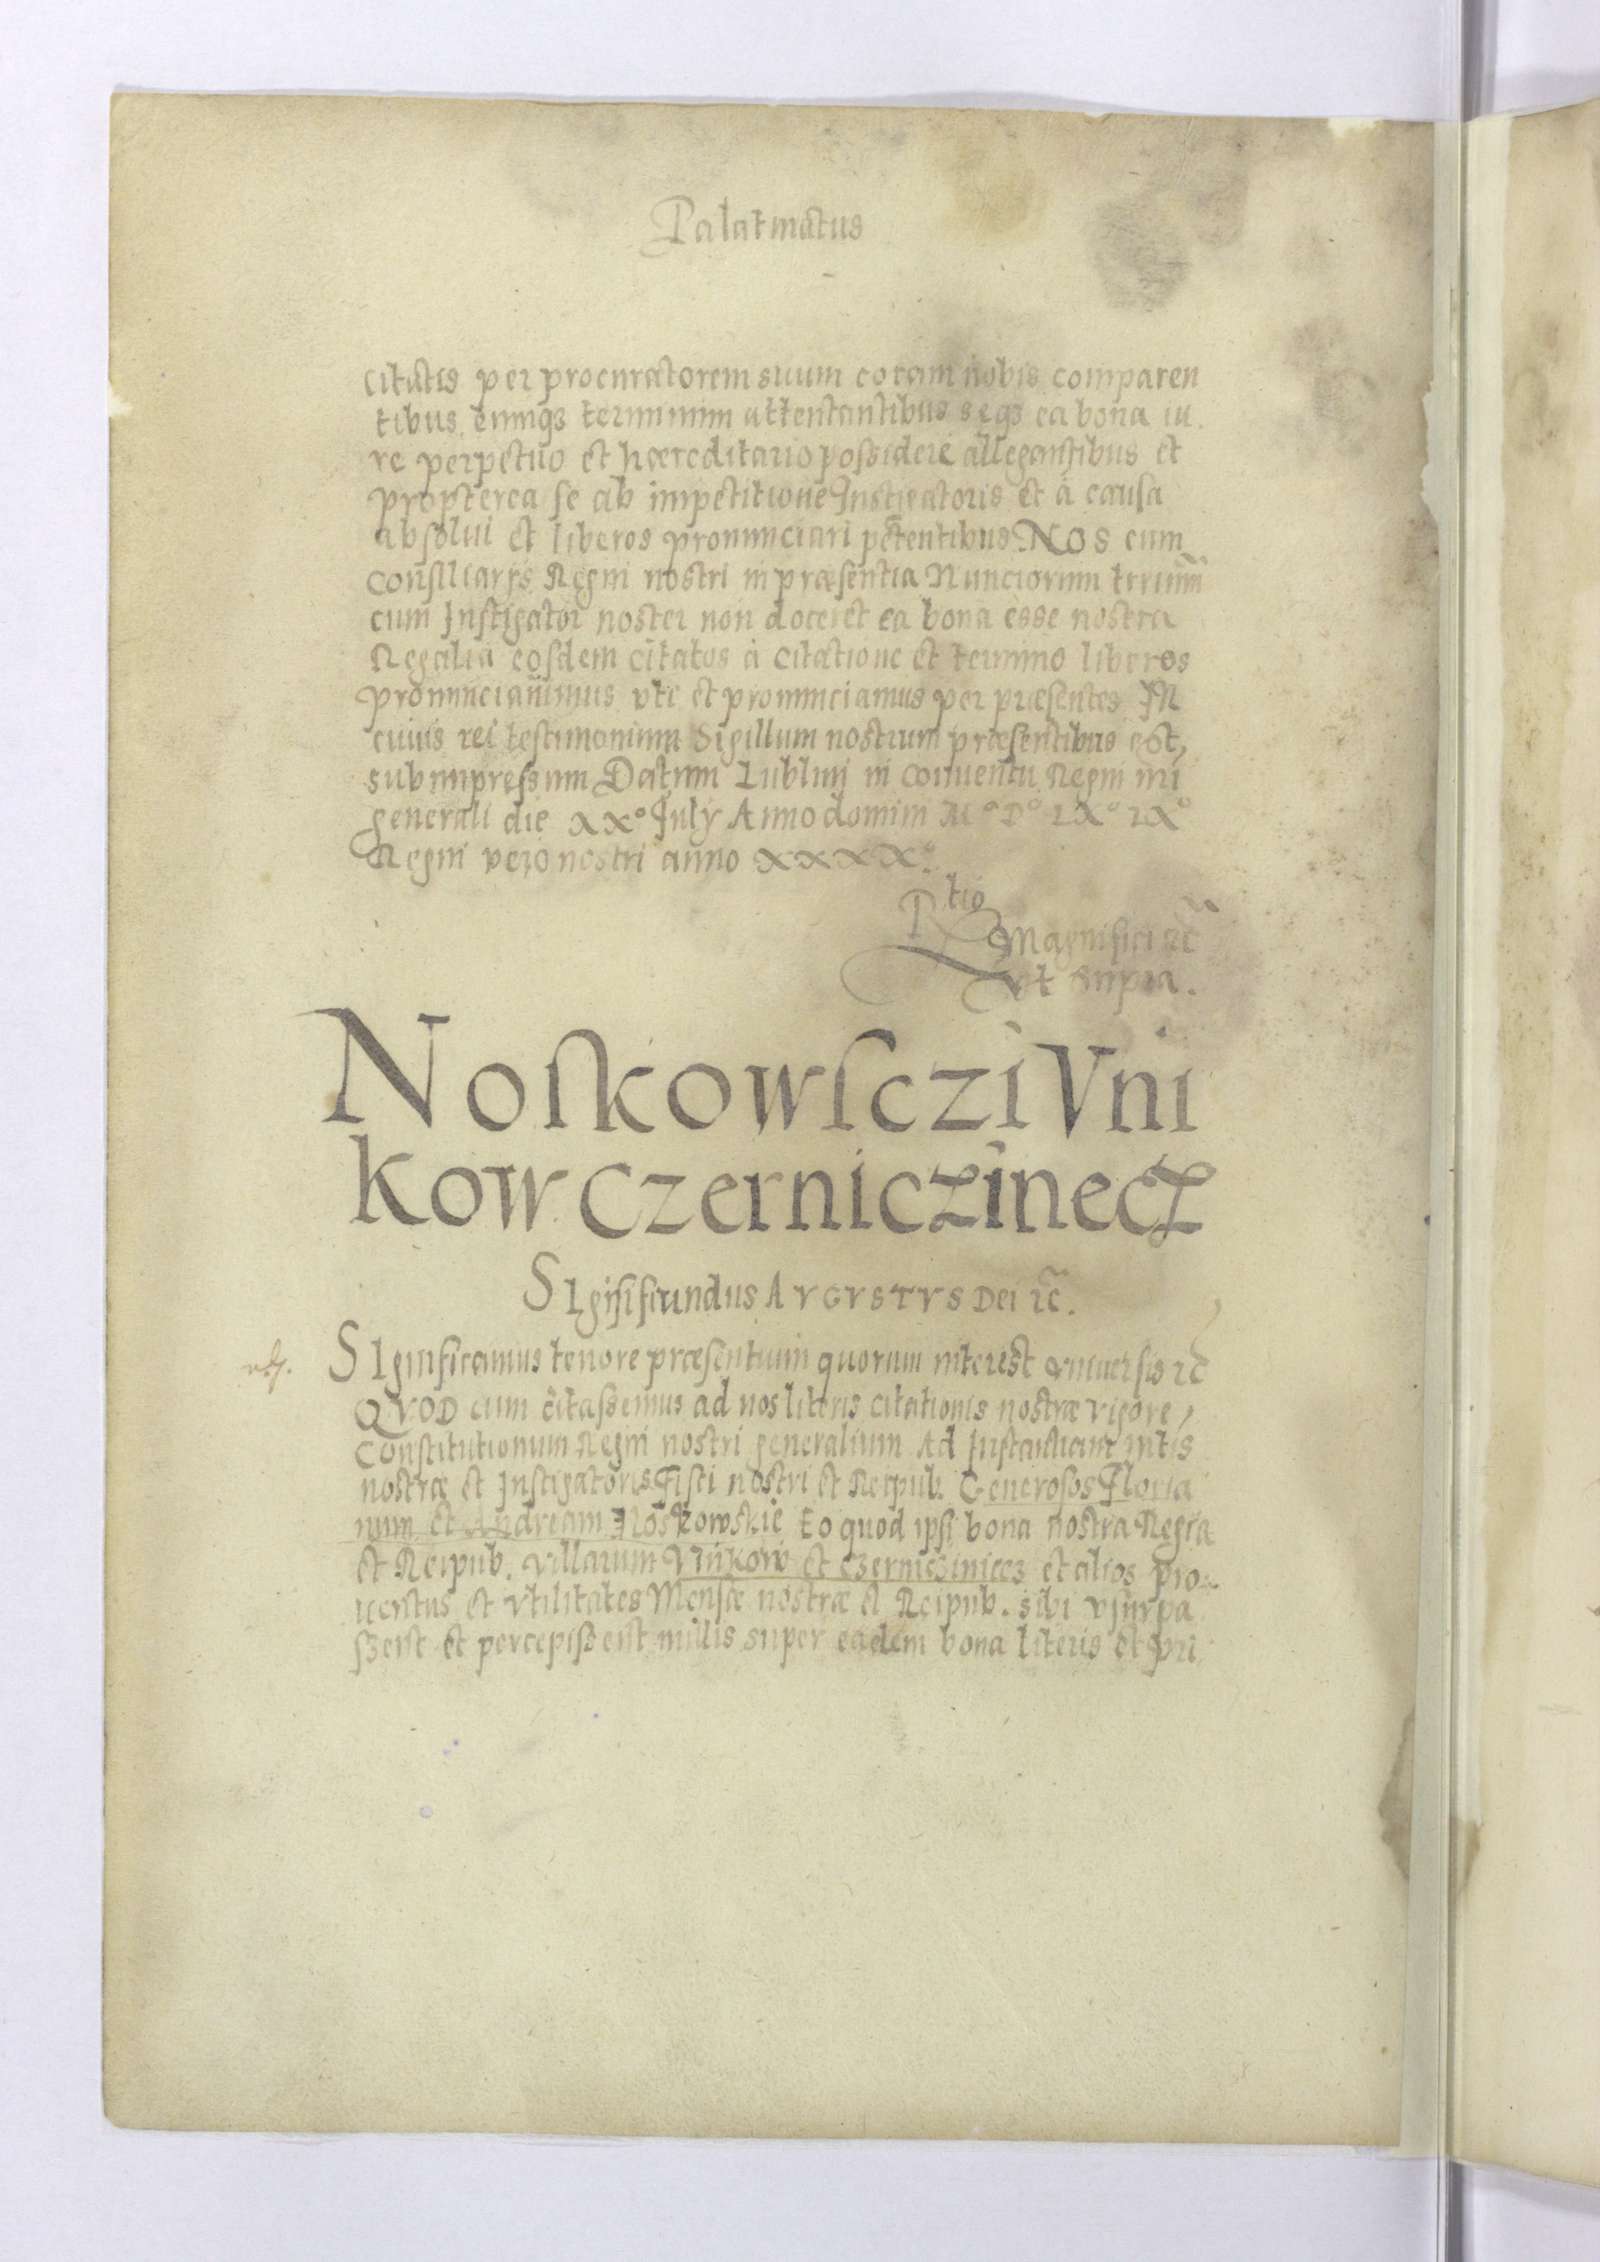 Palatinatus
citatis per procuratorem suum coram nobis comparen
tibus, eumq3 terminum attentantibus seq3 ea bona iu.
re perpetuo et hæreditario possidere allegantibus et
propterea se ab impetitione Instigatoris et à causa
absolui et liberos pronunciari petentibus. NOS cum
Consiliarys Regni nostri in præsentia Nunciorum
cum Instigator noster non doceret ea bona esse nostra
Regalia eosdem citatos à citatione et termino liberos
pronunciauimus vti et pronunciamus per præsentes IN
cuius rei testimonium Sigillum nostrum præsentibus est,
subimpressum Datum Lublini in Conuentu Regni nri
generali die XX° July Anno domini M° D° LX° IX°
Regni vero nostri anno XXXX°.
Rtio
Magnifici ꝛc̃
vt supra.
Noskowsczi Vni
kow Czerniczinecz
SIgismundus AVGVSTVS Dei ꝛc̃.
SIgnificamus tenore præsentium quorum interest vniuersis ꝛc̃
QVOD cum citassemus ad nos literis citationis nostræ vigore,
Constitutionum Regni nostri generalium Ad Instantiam Intis
nostræ et Instigatoris Fisci nostri et Reipub. Generosos Floria
num et Andream Noskowskie Eo quod ipsi bona nostra Regia
et Reipub. villarum Vnikow et czernicziniecz et alios pro-
uentus et vtilitates Mensæ nostræ et Reipub. sibi vsurpa
szent et percepissent nullis super eadem bona literis et Pri